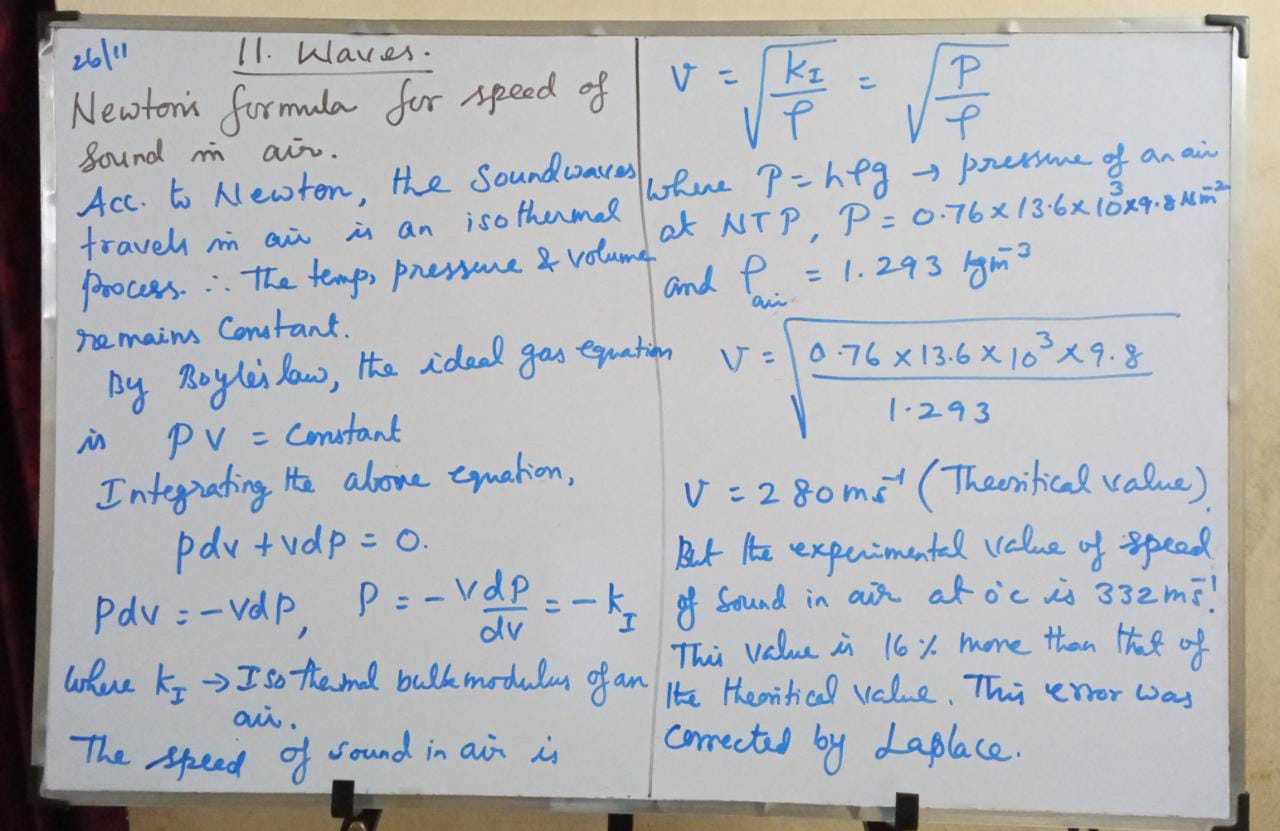 26/11
11. Waves.
Newton's formula for speed of
Sound in air.
Acc. to Newton, the Soundwaves
travels in air is an isothermal
process. ∴ The temp, pressure & volume
remains Constant.
By Boyle's law, the ideal gas equation
is PV = Constant
Integrating the above equation,
pdv + vdp = 0.
Pdv = -vdp, P = -Vdp/dv = -k_I
Where k_I → Isothermal bulk modulus of an
air.
The speed of sound in air is
V = √(k_I/ρ) = √(P/ρ)
Where P = hρg → pressure of an air
at NTP, P = 0.76 x 13.6 x 10³ x 9.8 Nm⁻²
and ρ_air = 1.293 kgm⁻³
V = √(0.76 x 13.6 x 10³ x 9.8 / 1.293)
V = 280 ms⁻¹ (Theoritical value).
But the experimental value of speed
of Sound in air at 0°c is 332 ms⁻¹.
This value is 16% more than that of
the theoritical value. This error was
Corrected by Laplace.